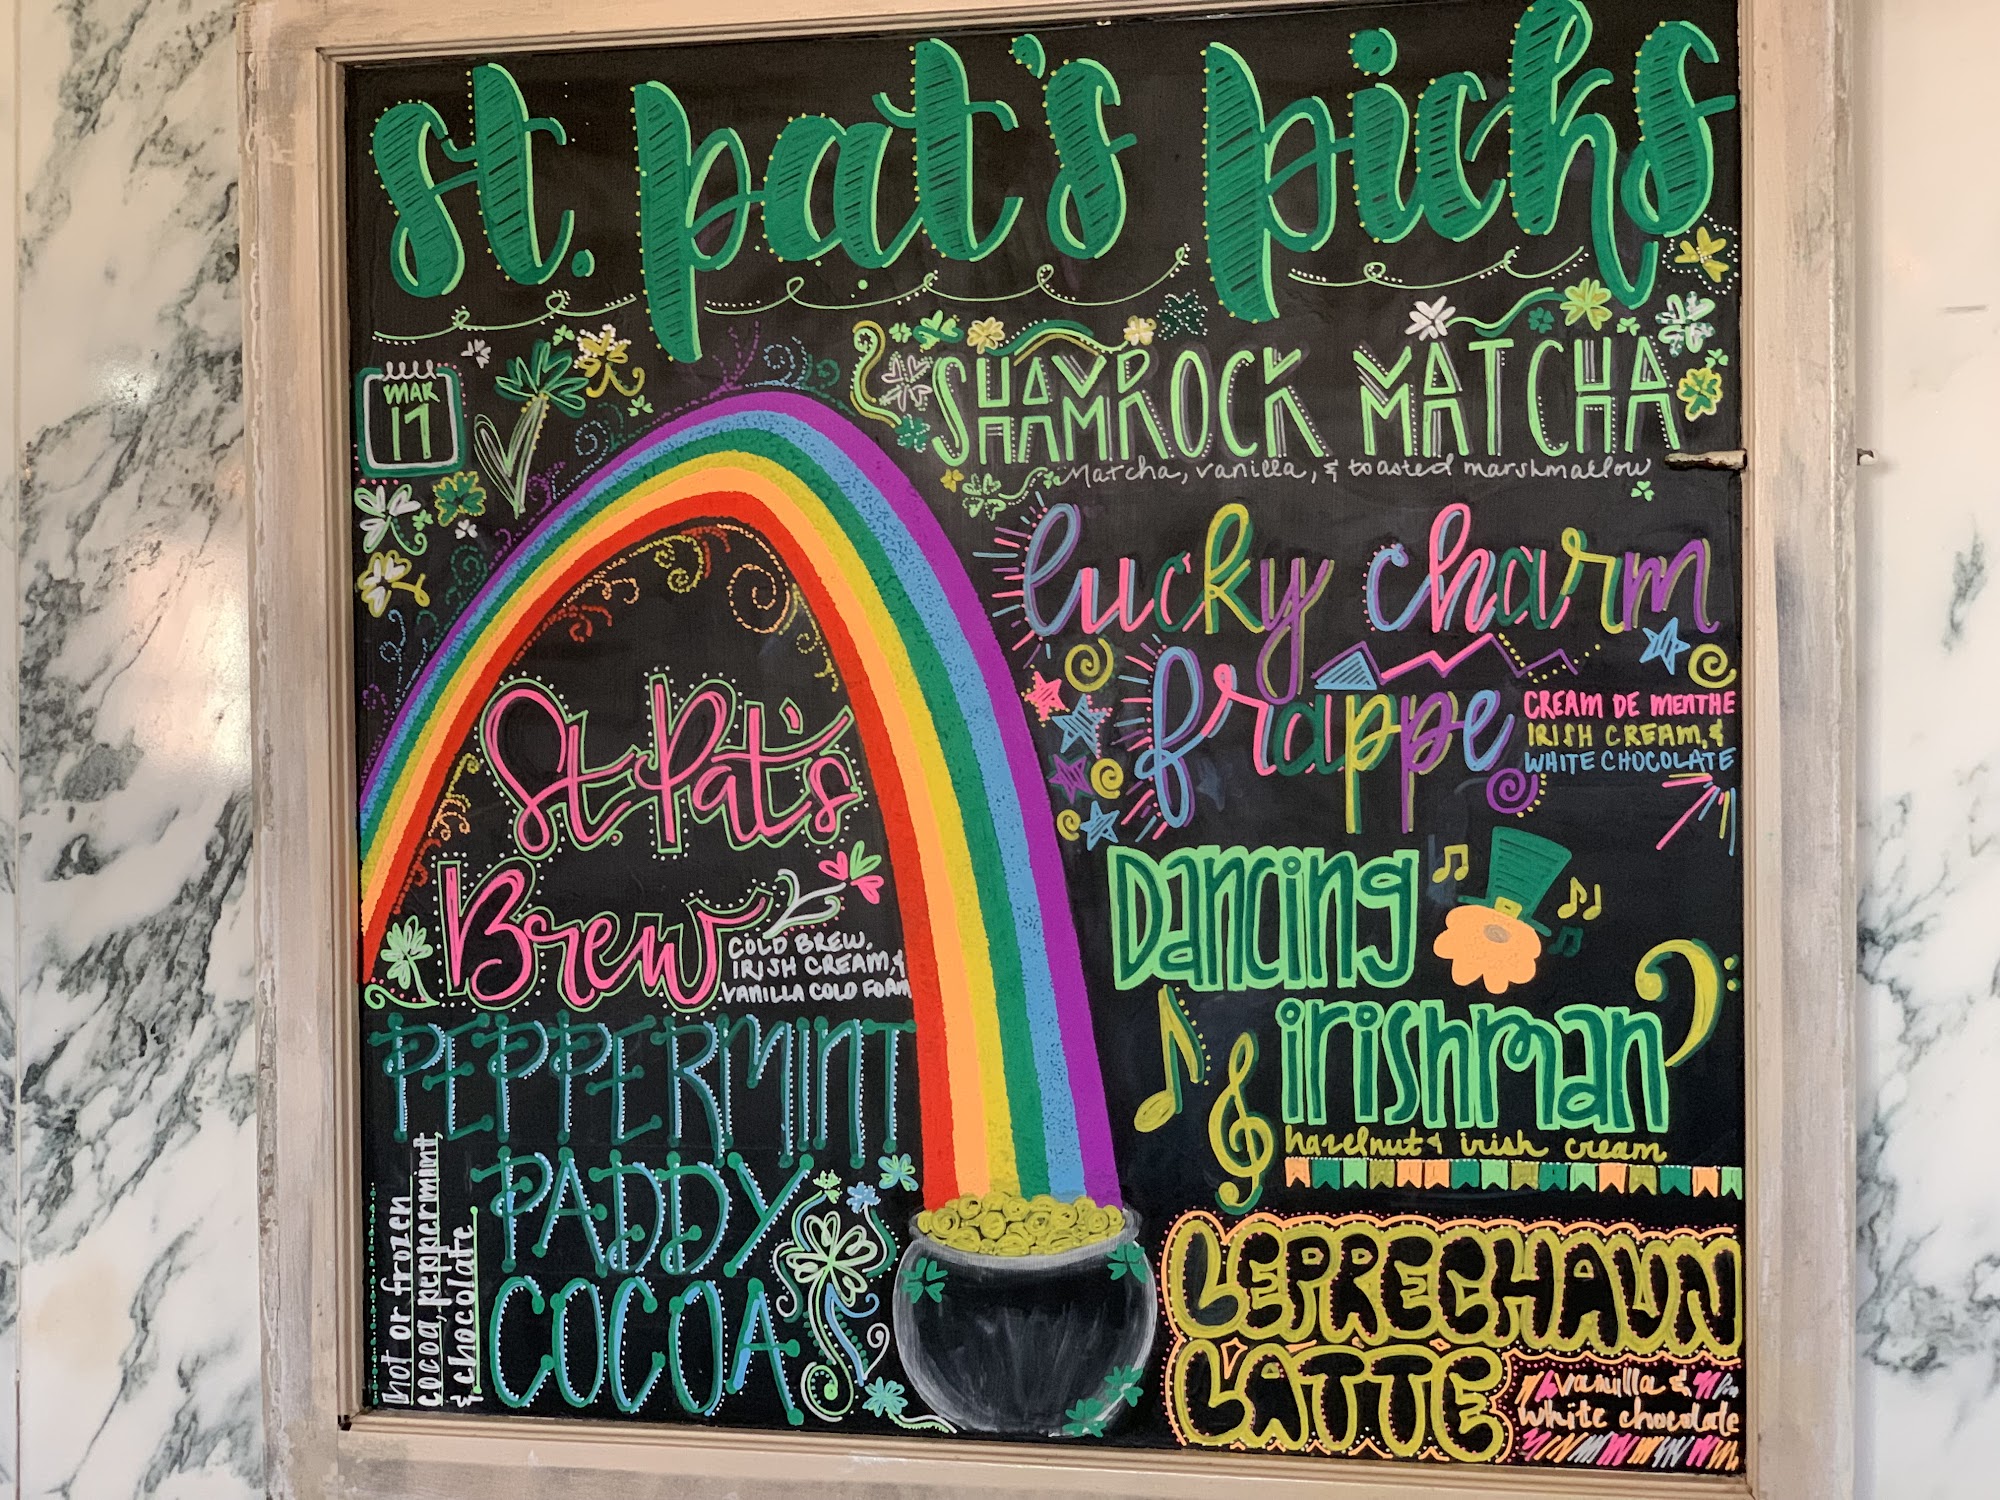 st. pat's picks
MAR
17
SHAMROCK MATCHA
Matcha, vanilla, & toasted marshmallow
lucky charm
frappe
CREAM DE MENTHE
IRISH CREAM, &
WHITE CHOCOLATE
St. Pat's
Brew
COLD BREW,
IRISH CREAM, &
VANILLA COLD FOAM
Dancing
irishman
hazelnut & irish cream
PEPPERMINT
PADDY
COCOA
hot or frozen
cocoa, peppermint,
& chocolate
LEPRECHAUN
LATTE
vanilla &
white chocolate